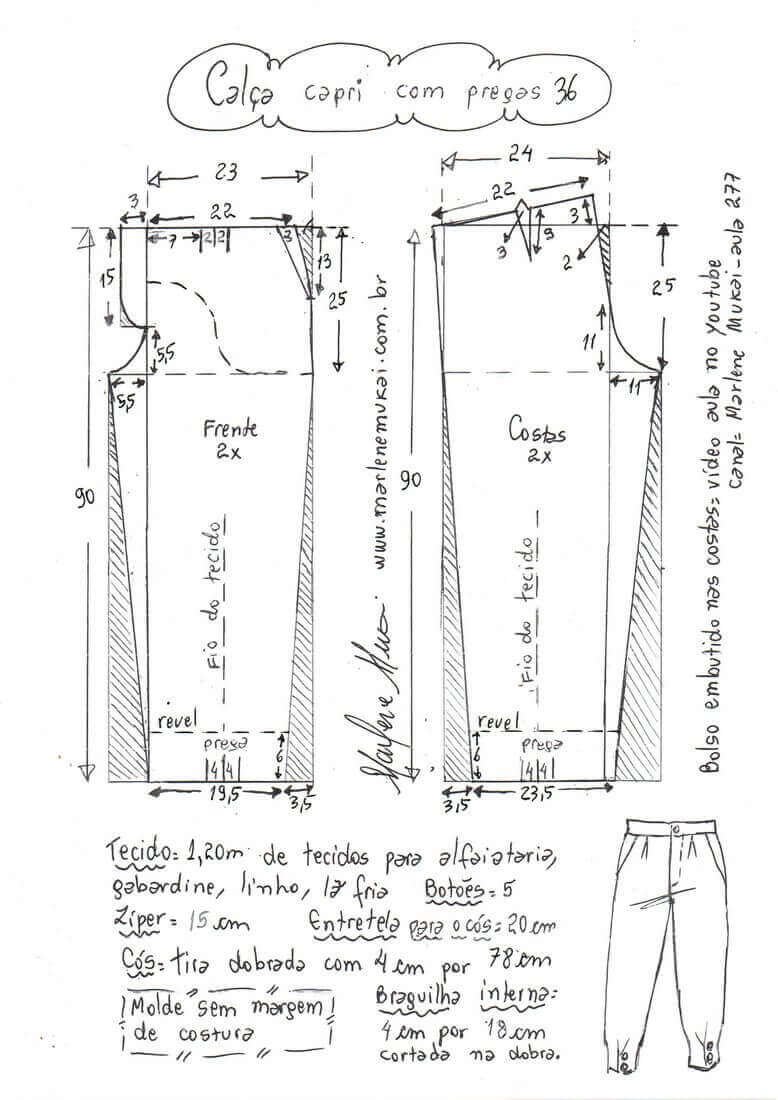 Calça capri com pregas 36
23
3
22
7
2
2
3
13
15
25
5,5
5,5
Frente
2x
90
Fio do tecido
revel
prega
4
4
6
19,5
3,5
www.marlenemukai.com.br
24
22
3
9
3
2
25
11
11
Costas
2x
90
Fio do tecido
revel
prega
4
4
6
3,5
23,5
Bolso embutido nas costas= vídeo aula no youtube
canal= Marlene Mukai-aula 277
Tecido= 1,20m de tecidos para alfaiataria,
gabardine, linho, lã fria Botões= 5
Zíper= 15 cm Entretela para o cós= 20 cm
Cós= tira dobrada com 4 cm por 78 cm
Molde sem margem
de costura
Braguilha interna=
4 cm por 18 cm
cortada na dobra.